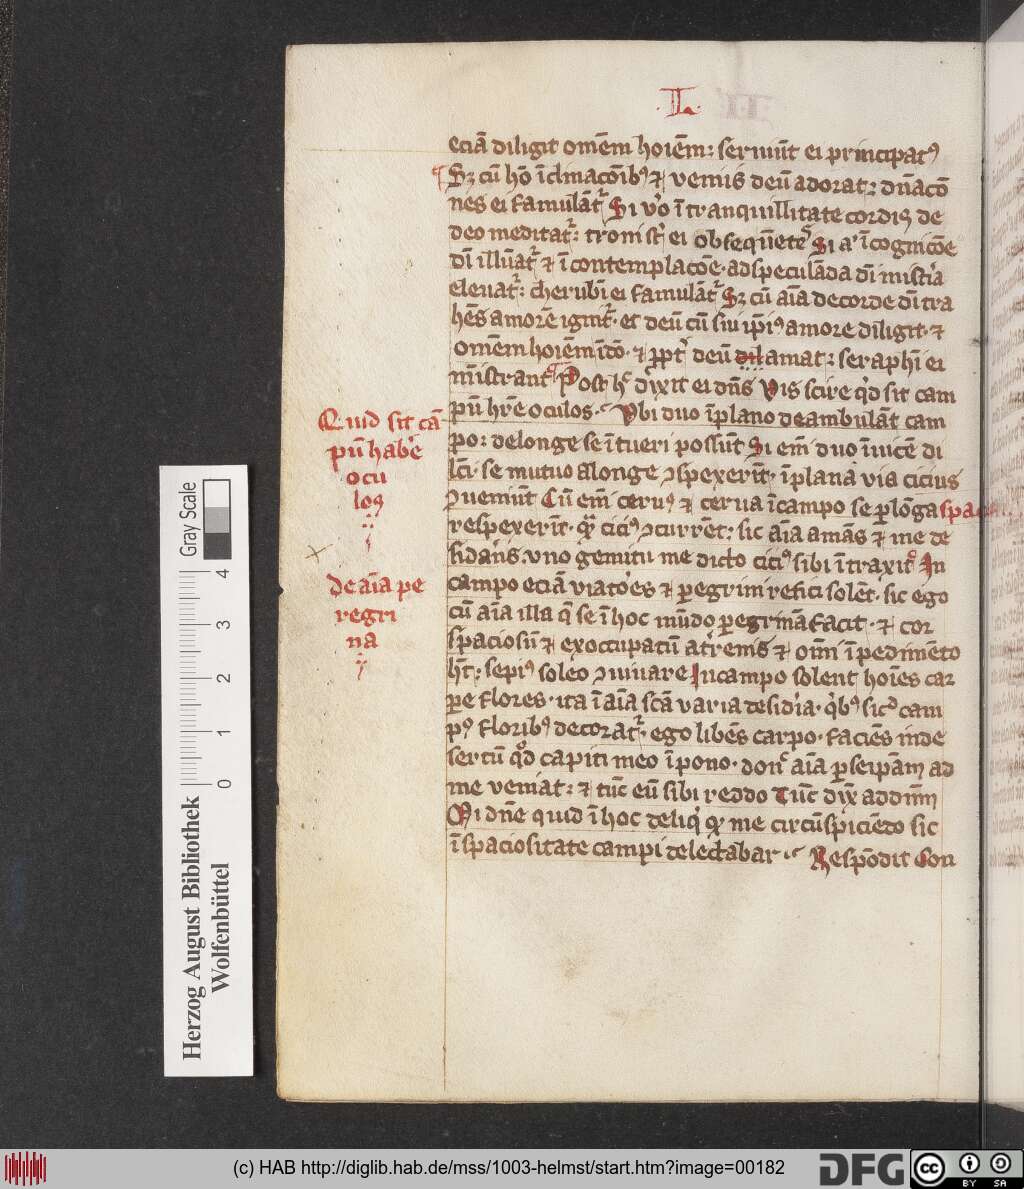 .L.
eciā diligit omēm hoiēm: seruiūt ei principatꝰ
Sꝫ cū hō ī clinacōibꝰ ⁊ venūs deū adorat: dn̄acō
nes ei famulāt᷑ Si vͦo ī tranquillitate cordis de
deo meditat᷑: troni st̄ ei obseque̅teˢ Si aͥ ī cognicōe
dī illūat᷑ ⁊ ī contemplacōe · ad speculāda dī mist̄ia
eleuat᷑: cherubī ei famulāt᷑ Sꝫ cū aīa de corde dī tra
hēs amorē ignit᷑ · et deū cū siu ip̄iꝰ amore diligit · ⁊
omēm hoiēm ī tō · ⁊ ꝓpt̄ deū dil amat: seraphī ei
mīstrant Post hͨ dixit ei dn̄s Vis scire qͥd sit cam
pū hr̄e oculos · Vbi duo ī plano deambulāt cam
po: de longe se ī tueri possūt Si em̄ duo īuicē di
lc̄i · se mutuo a longe ꝯspexerīt · ī plana via cicius
ꝯueniūt Cū em̄ ceruꝰ ⁊ cerua ī campo se ꝑ lōga spacia
respexerīt · qᷓ ciciꝰ ꝯcurrēt: sic aīa amās ⁊ me de
sidans̄ · vno gemitu me dicto ciciꝰ sibi ī traxit In
campo eciā viatoēs ⁊ peregrini refici solēt · sic ego
cū aīa illa q̄ se ī hoc mūdo ꝑegrinā facit · ⁊ cor
spaciosū ⁊ exoccupatū a tr̄enis ⁊ om̄i ī pedimēto
hn̄t: sepiꝰ soleo ꝯuiuare In campo solent hoīes car
pe flores · ita ī aīa scā varia desidīa · qͥbꝰ sicͩ cam
pꝰ floribꝰ decorat᷑ · ego libēs carpo · faciēs inde
sertū qͦd capiti meo ī pono · donͨ aīa ꝑ seipām ad
me veniat: ⁊ tūc eū sibi reddo Tūc dix̄ ad dnm̄
Mi dn̄e quid ī hoc deliqͥ qꝫ me circūspiciēdo sic
ī spaciositate campi delectabar · Respōdit Con
Quid sit cā
pū habēe
ocu
los
de aīa pe
regri
na
Gray Scale
0 1 2 3 4
Herzog August Bibliothek
Wolfenbüttel
(c) HAB http://diglib.hab.de/mss/1003-helmst/start.htm?image=00182
DFG
cc BY SA